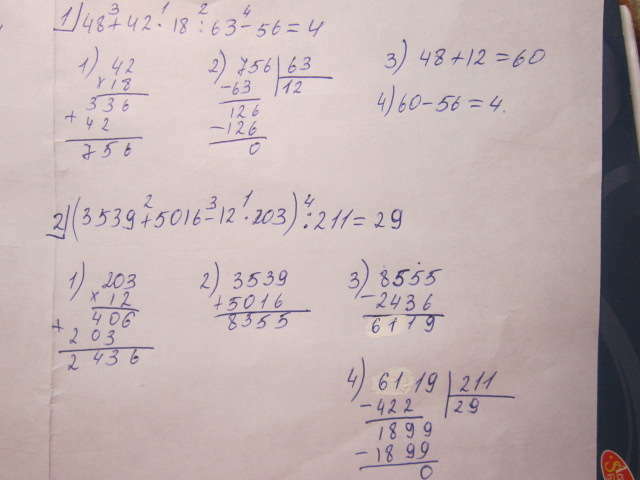 1) 48 + 42 · 18 : 63 - 56 = 4
3 1 2 4
1) 42
× 18
336
+ 42
756
2) 756 | 63
- 63 | 12
126
- 126
0
3) 48 + 12 = 60
4) 60 - 56 = 4.
2) (3539 + 5016 - 12 · 203) : 211 = 29
2 3 1 4
1) 203
× 12
406
+ 203
2436
2) 3539
+ 5016
8355
3) 8555
- 2436
6119
4) 6119 | 211
- 422 | 29
1899
- 1899
0